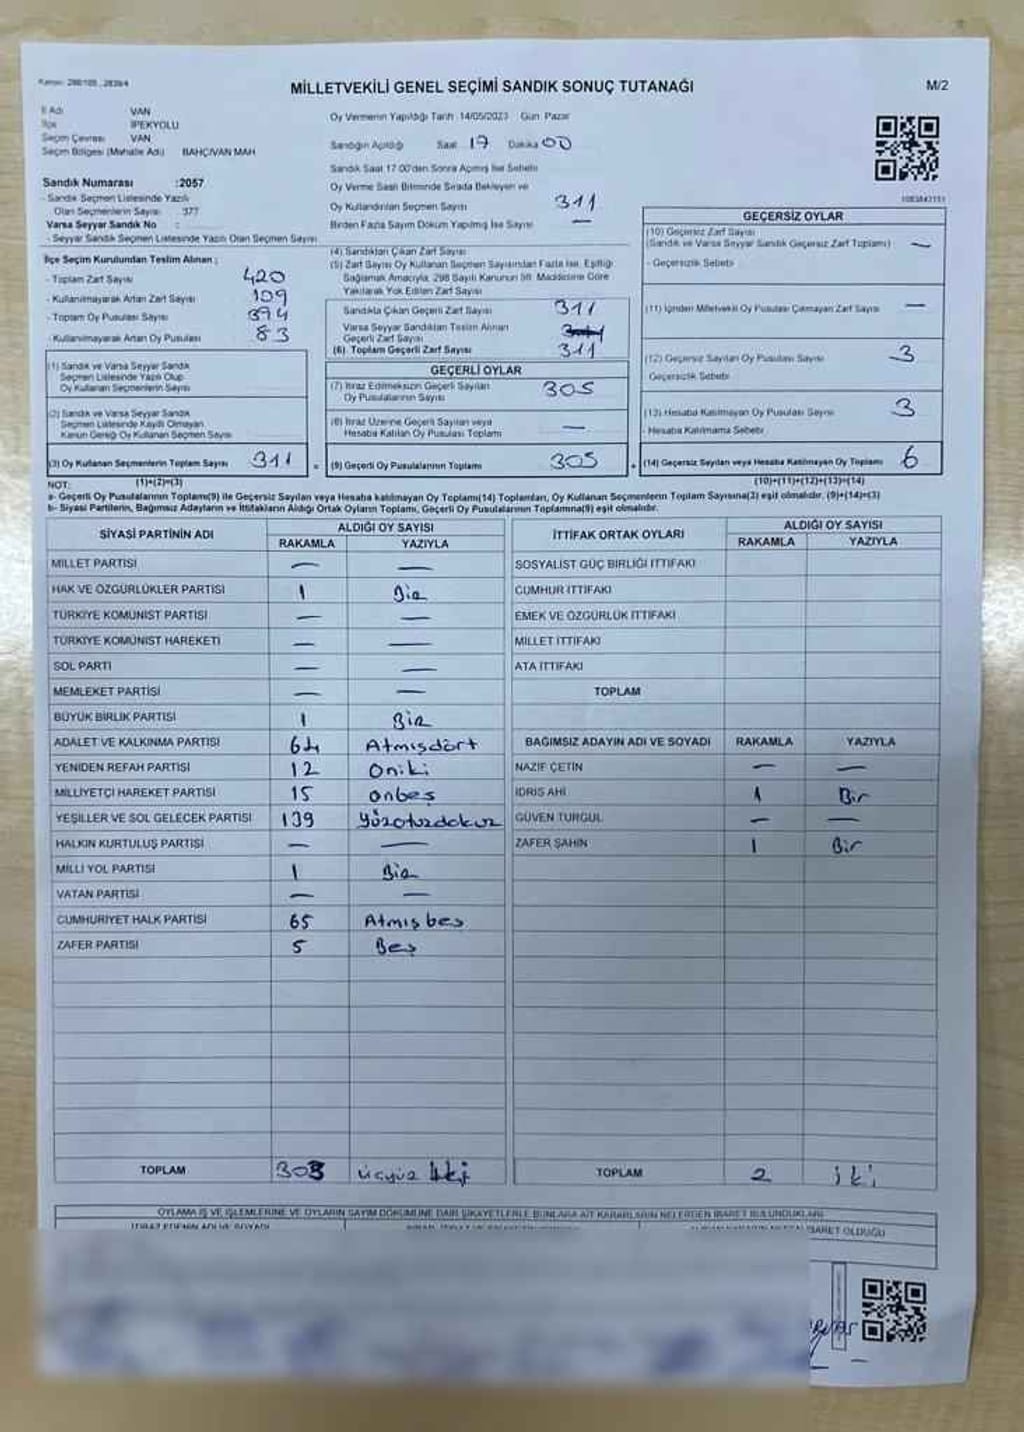 MİLLETVEKİLİ GENEL SEÇİMİ SANDIK SONUÇ TUTANAĞI
M/2
İl Adı VAN
İlçe İPEKYOLU
Seçim Çevresi VAN
Seçim Bölgesi (Mahalle Adı) BAHÇIVAN MAH
Sandık Numarası :2057
- Sandık Seçmen Listesinde Yazılı
Olan Seçmenlerin Sayısı : 377
Varsa Seyyar Sandık No :
- Seyyar Sandık Seçmen Listesinde Yazılı Olan Seçmen Sayısı
İlçe Seçim Kurulundan Teslim Alınan ;
- Toplam Zarf Sayısı 420
- Kullanılmayarak Artan Zarf Sayısı 109
- Toplam Oy Pusulası Sayısı 394
- Kullanılmayarak Artan Oy Pusulası 83
(1) Sandık ve Varsa Seyyar Sandık
Seçmen Listesinde Yazılı Olup
Oy Kullanan Seçmenlerin Sayısı
(2) Sandık ve Varsa Seyyar Sandık
Seçmen Listesinde Kayıtlı Olmayan
Kanun Gereği Oy Kullanan Seçmen Sayısı
(3) Oy Kullanan Seçmenlerin Toplam Sayısı 311 =
Oy Vermenin Yapıldığı Tarih :14/05/2023 Gün: Pazar
Sandığın Açıldığı Saat 17 Dakika 00
Sandık Saat 17.00'den Sonra Açılmış İse Sebebi
Oy Verme Saati Bitiminde Sırada Bekleyen ve
Oy Kullandırılan Seçmen Sayısı 311
Birden Fazla Sayım Döküm Yapılmış İse Sayısı —
(4) Sandıktan Çıkan Zarf Sayısı
(5) Zarf Sayısı Oy Kullanan Seçmen Sayısından Fazla İse, Eşitliği
Sağlamak Amacıyla, 298 Sayılı Kanunun 98. Maddesine Göre
Yakılarak Yok Edilen Zarf Sayısı
Sandıkta Çıkan Geçerli Zarf Sayısı 311
Varsa Seyyar Sandıktan Teslim Alınan
Geçerli Zarf Sayısı
(6) Toplam Geçerli Zarf Sayısı 311
GEÇERLİ OYLAR
(7) İtiraz Edilmeksizin Geçerli Sayılan
Oy Pusulalarının Sayısı 305
(8) İtiraz Üzerine Geçerli Sayılan veya
Hesaba Katılan Oy Pusulası Toplamı —
(9) Geçerli Oy Pusulalarının Toplamı 305 +
GEÇERSİZ OYLAR
(10) Geçersiz Zarf Sayısı
(Sandık ve Varsa Seyyar Sandık Geçersiz Zarf Toplamı) —
- Geçersizlik Sebebi
(11) İçinden Milletvekili Oy Pusulası Çıkmayan Zarf Sayısı —
(12) Geçersiz Sayılan Oy Pusulası Sayısı 3
Geçersizlik Sebebi
(13) Hesaba Katılmayan Oy Pusulası Sayısı 3
- Hesaba Katılmama Sebebi
(14) Geçersiz Sayılan veya Hesaba Katılmayan Oy Toplamı 6
NOT: (1)+(2)=(3) (10)+(11)+(12)+(13)=(14)
a- Geçerli Oy Pusulalarının Toplamı(9) ile Geçersiz Sayılan veya Hesaba katılmayan Oy Toplamı(14) Toplamları, Oy Kullanan Seçmenlerin Toplam Sayısına(3) eşit olmalıdır. (9)+(14)=(3)
b- Siyasi Partilerin, Bağımsız Adayların ve İttifakların Aldığı Ortak Oyların Toplamı, Geçerli Oy Pusulalarının Toplamına(9) eşit olmalıdır.
SİYASİ PARTİNİN ADI ALDIĞI OY SAYISI
RAKAMLA YAZIYLA
MİLLET PARTİSİ — —
HAK VE ÖZGÜRLÜKLER PARTİSİ 1 Bir
TÜRKİYE KOMÜNİST PARTİSİ — —
TÜRKİYE KOMÜNİST HAREKETİ — —
SOL PARTİ — —
MEMLEKET PARTİSİ — —
BÜYÜK BİRLİK PARTİSİ 1 Bir
ADALET VE KALKINMA PARTİSİ 64 Atmışdört
YENİDEN REFAH PARTİSİ 12 Oniki
MİLLİYETÇİ HAREKET PARTİSİ 15 onbeş
YEŞİLLER VE SOL GELECEK PARTİSİ 139 Yüzotuzdokuz
HALKIN KURTULUŞ PARTİSİ — —
MİLLİ YOL PARTİSİ 1 Bir
VATAN PARTİSİ — —
CUMHURİYET HALK PARTİSİ 65 Atmışbeş
ZAFER PARTİSİ 5 Beş
TOPLAM 303 üçyüz
İTTİFAK ORTAK OYLARI ALDIĞI OY SAYISI
RAKAMLA YAZIYLA
SOSYALİST GÜÇ BİRLİĞİ İTTİFAKI
CUMHUR İTTİFAKI
EMEK VE ÖZGÜRLÜK İTTİFAKI
MİLLET İTTİFAKI
ATA İTTİFAKI
TOPLAM
BAĞIMSIZ ADAYIN ADI VE SOYADI RAKAMLA YAZIYLA
NAZİF ÇETİN — —
İDRİS AHİ 1 Bir
GÜVEN TURGUL — —
ZAFER ŞAHİN 1 Bir
TOPLAM 2 iki
OYLAMA İŞ VE İŞLEMLERİNE VE OYLARIN SAYIM DÖKÜMÜNE DAİR ŞİKAYETLERLE BUNLARA AİT KARARLARIN NELERDEN İBARET BULUNDUKLARI
İTİRAZ EDENİN ADI VE SOYADI